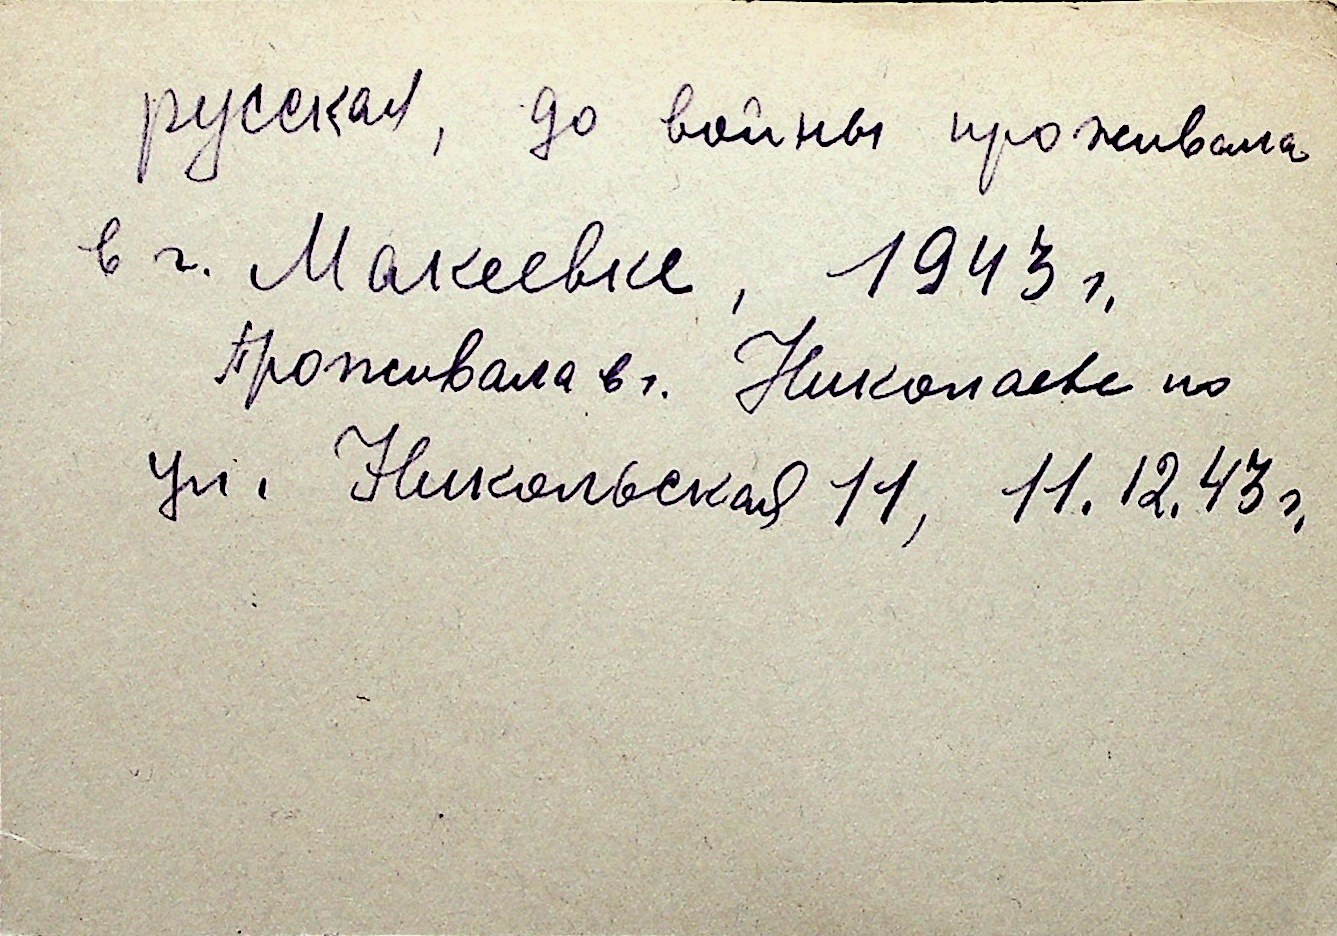 русская, до войны проживала
в г. Макеевке, 1943 г.
Проживала в г. Николаеве по
ул. Никольская 11, 11.12.43 г.